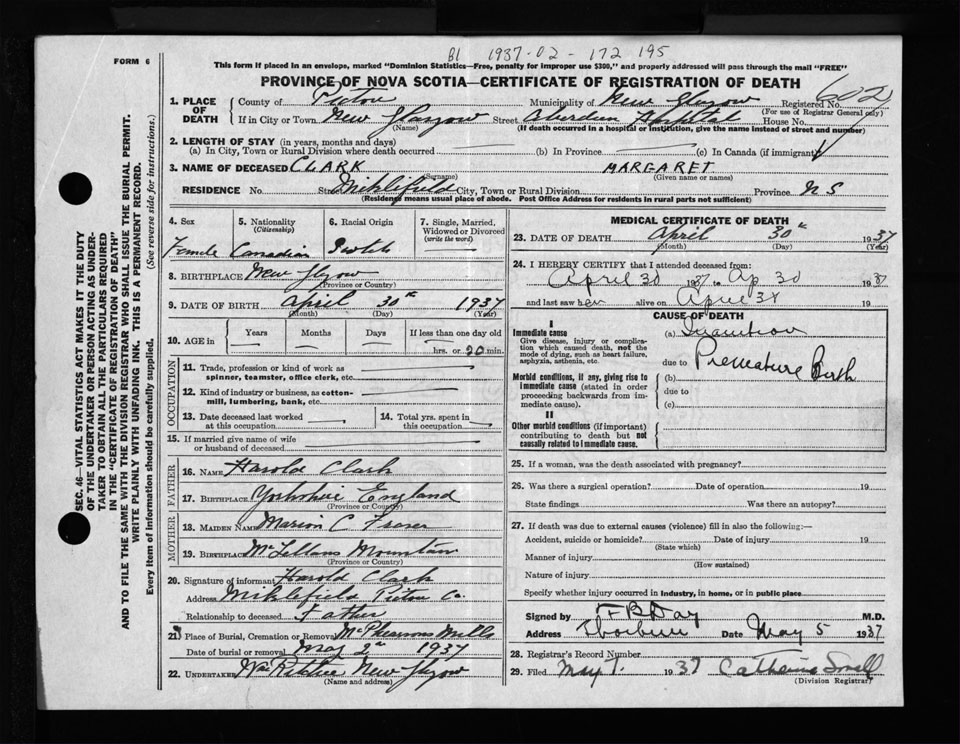 B1 1937-02-172195
FORM 6
This form if placed in an envelope, marked "Dominion Statistics—Free, penalty for improper use $300," and properly addressed will pass through the mail "FREE"
PROVINCE OF NOVA SCOTIA—CERTIFICATE OF REGISTRATION OF DEATH
602
1. PLACE OF DEATH
County of Pictou Municipality of New Glasgow Registered No.
(For use of Registrar General only)
If in City or Town New Glasgow Street Aberdeen Hospital House No.
(Name) (If death occurred in a hospital or institution, give the name instead of street and number)
2. LENGTH OF STAY (in years, months and days)
(a) In City, Town or Rural Division where death occurred — (b) In Province — (c) In Canada (if immigrant)
3. NAME OF DECEASED CLARK MARGARET
(Surname) (Given name or names)
RESIDENCE No. Street City, Town or Rural Division Province N S
(Residence means usual place of abode. Post Office Address for residents in rural parts not sufficient)
4. Sex 5. Nationality (Citizenship) 6. Racial Origin 7. Single, Married, Widowed or Divorced (write the word)
Female Canadian Scotch
8. BIRTHPLACE New Glasgow
(Province or County)
9. DATE OF BIRTH April 30th 1937
(Month) (Day) (Year)
10. AGE in Years Months Days If less than one day old
— — — hrs. or 20 min.
OCCUPATION
11. Trade, profession or kind of work as spinner, teamster, office clerk, etc.
12. Kind of industry or business, as cotton-mill, lumbering, bank, etc.
13. Date deceased last worked at this occupation 14. Total yrs. spent in this occupation
15. If married give name of wife or husband of deceased
FATHER
16. NAME Harold Clark
17. BIRTHPLACE Yorkshire England
(Province or County)
MOTHER
18. MAIDEN NAME Marion C Fraser
19. BIRTHPLACE McLellans Mountain
(Province or County)
20. Signature of informant Harold Clark
Address Pictou Co.
Relationship to deceased Father
21. Place of Burial, Cremation or Removal McPhersons Mills
Date of burial or removal May 2nd 1937
22. UNDERTAKER New Glasgow
(Name and address)
MEDICAL CERTIFICATE OF DEATH
23. DATE OF DEATH April 30th 1937
(Month) (Day) (Year)
24. I HEREBY CERTIFY that I attended deceased from:
April 30 1937 to Ap 30 1937
and last saw her alive on April 19
CAUSE OF DEATH
I
Immediate cause
Give disease, injury or complication which caused death, not the mode of dying, such as heart failure, asphyxia, asthenia, etc.
(a) Inanition
due to Premature Birth
Morbid conditions, if any, giving rise to immediate cause (stated in order proceeding backwards from immediate cause).
(b)
due to
(c)
II
Other morbid conditions (if important) contributing to death but not causally related to immediate cause.
25. If a woman, was the death associated with pregnancy?
26. Was there a surgical operation? Date of operation 19
State findings Was there an autopsy?
27. If death was due to external causes (violence) fill in also the following:—
Accident, suicide or homicide? Date of injury 19
(State which)
Manner of injury
(How sustained)
Nature of injury
Specify whether injury occurred in industry, in home, or in public place
Signed by F B Day M.D.
Address Thorburn Date May 5 1937
28. Registrar's Record Number
29. Filed May 7. 1937 Catherine Small
(Division Registrar)
SEC. 46—VITAL STATISTICS ACT MAKES IT THE DUTY
OF THE UNDERTAKER OR PERSON ACTING AS UNDER-
TAKER TO OBTAIN ALL THE PARTICULARS REQUIRED
IN THE "CERTIFICATE OF REGISTRATION OF DEATH"
AND TO FILE THE SAME WITH THE DIVISION REGISTRAR WHO SHALL ISSUE THE BURIAL PERMIT.
WRITE PLAINLY WITH UNFADING INK. THIS IS A PERMANENT RECORD.
Every item of information should be carefully supplied. (See reverse side for instructions.)